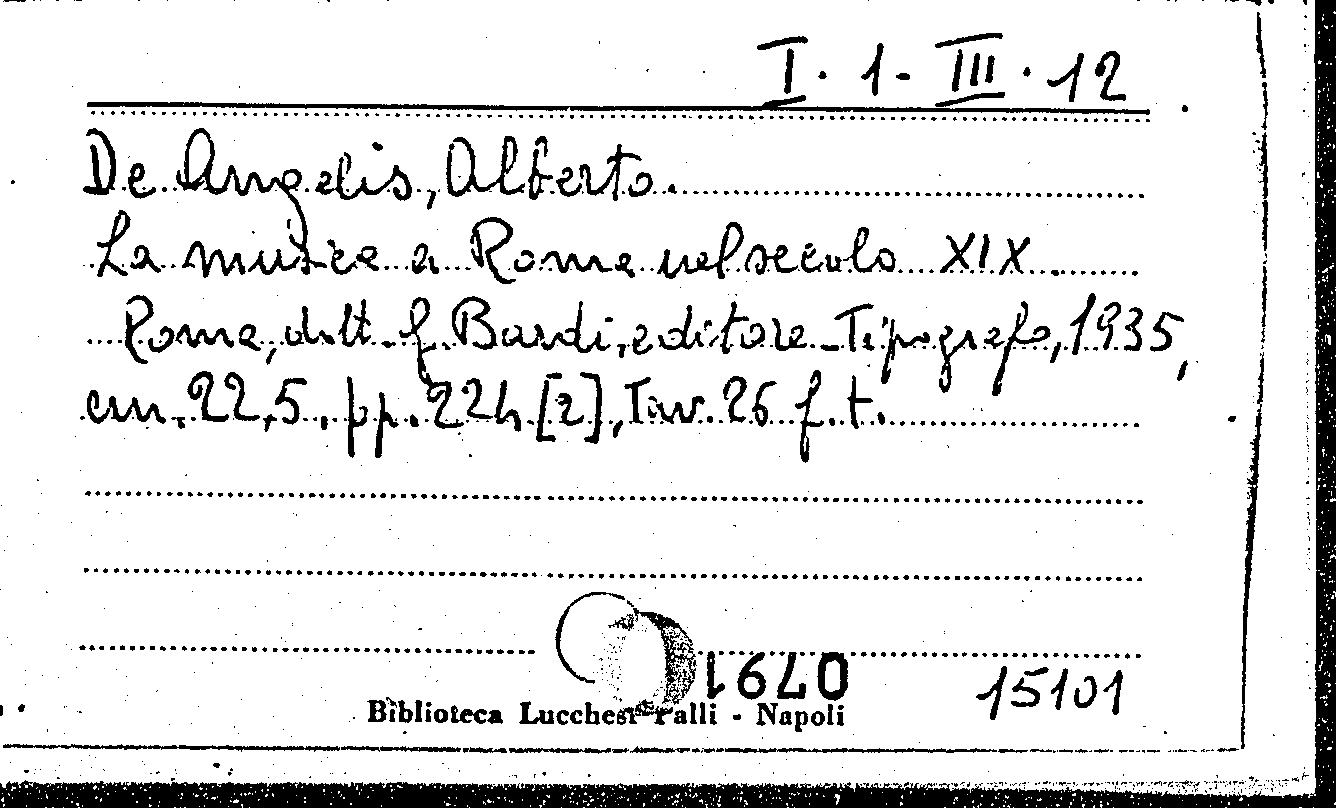 I. 1 - III. 12
De Angelis, Alberto.
La musica a Roma nel secolo XIX
Roma, dott. G. Bardi, editore - Tipografo, 1935,
cm. 22,5, pp. 224 [2], Tav. 26 f. t.
0791
15101
Biblioteca Lucchesi Palli - Napoli